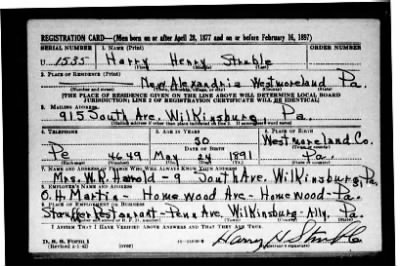 REGISTRATION CARD—(Men born on or after April 28, 1877 and on or before February 16, 1897)
SERIAL NUMBER 1. NAME (Print) ORDER NUMBER
U 1535 Harry Henry Struble
(First) (Middle) (Last)
2. PLACE OF RESIDENCE (Print)
New Alexandria Westmoreland Pa.
(Number and street) (Town, township, village, or city) (County) (State)
[THE PLACE OF RESIDENCE GIVEN ON THE LINE ABOVE WILL DETERMINE LOCAL BOARD
JURISDICTION; LINE 2 OF REGISTRATION CERTIFICATE WILL BE IDENTICAL]
3. MAILING ADDRESS
915 South Ave. Wilkinsburg Pa.
[Mailing address if other than place indicated on line 2. If same insert word same]
4. TELEPHONE 5. AGE IN YEARS 6. PLACE OF BIRTH
50 Westmoreland Co.
DATE OF BIRTH
Pe 4649 May 24 1891 Pa.
7. NAME AND ADDRESS OF PERSON WHO WILL ALWAYS KNOW YOUR ADDRESS
Mrs. W. K. Harrold - 9 South Ave. Wilkinsburg Pa.
8. EMPLOYER'S NAME AND ADDRESS
O. H. Martin - Homewood Ave - Homewood - Pa.
9. PLACE OF EMPLOYMENT OR BUSINESS
Stouffer Restaurant - Penn Ave. Wilkinsburg - Ally. Pa.
I AFFIRM THAT I HAVE VERIFIED ABOVE ANSWERS AND THAT THEY ARE TRUE.
D. S. S. Form 1
(Revised 4-1-42) (over)
Harry H Struble